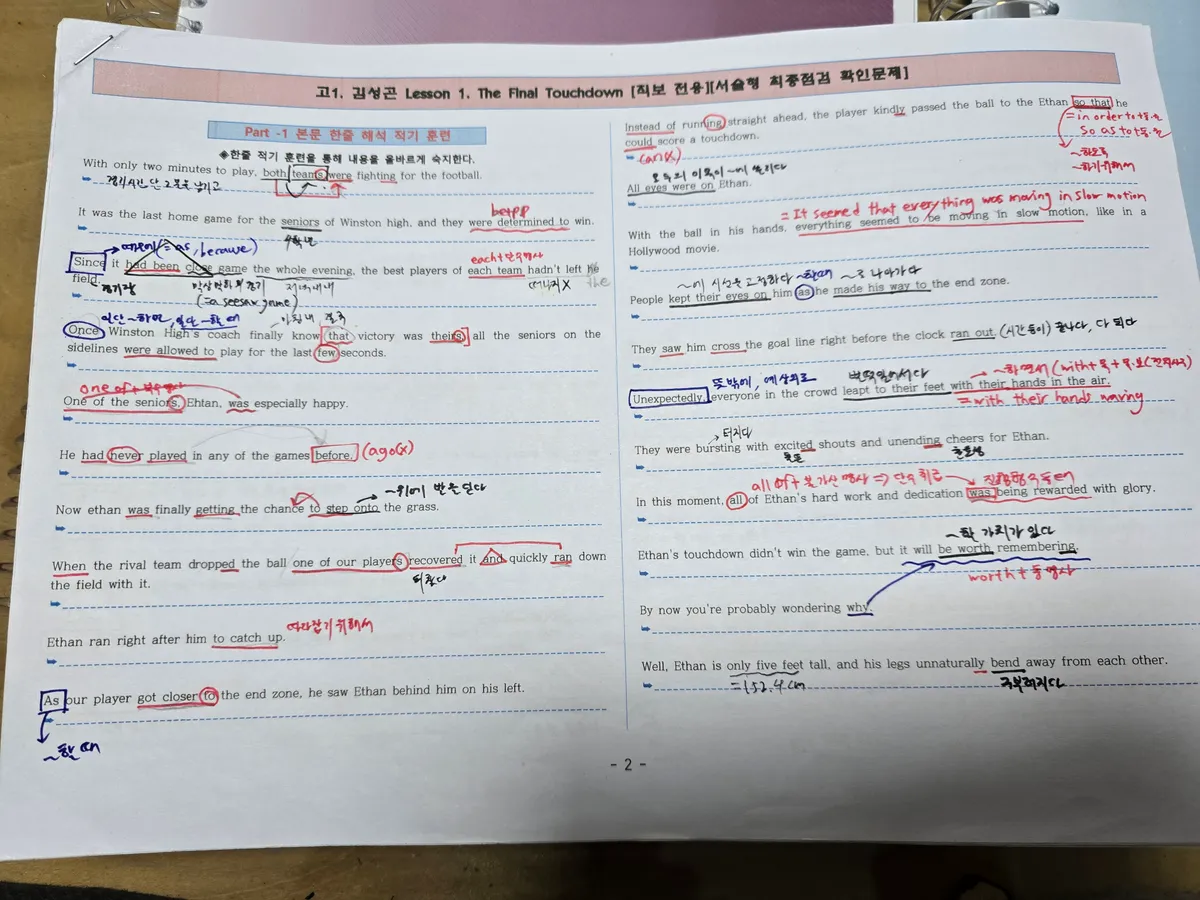 고1. 김성곤 Lesson 1. The Final Touchdown [직보 전용][서술형 최종점검 확인문제]
Part -1 본문 한줄 해석 적기 훈련
◈한줄 적기 훈련을 통해 내용을 올바르게 숙지한다.
With only two minutes to play, both teams were fighting for the football.
경기시간 단 2분을 남기고
be+pp
It was the last home game for the seniors of Winston high, and they were determined to win.
때문에(= as, because)
4학년
each+단수명사
Since it had been close game the whole evening, the best players of each team hadn't left the
field.
경기장
막상막하의 경기
저녁내내
떠나지X
the
(=a seesaw game)
일단~하면, 일단~할 때
마침내 결국
Once Winston High's coach finally know that victory was theirs, all the seniors on the
sidelines were allowed to play for the last few seconds.
one of + 복수명사
One of the seniors, Ehtan, was especially happy.
He had never played in any of the games before. (ago(x))
~위에 발을 딛다
Now ethan was finally getting the chance to step onto the grass.
When the rival team dropped the ball one of our players recovered it and quickly ran down
the field with it.
되찾다
Ethan ran right after him to catch up. 따라잡기 위해서
As our player got closer to the end zone, he saw Ethan behind him on his left.
~할 때
Instead of running straight ahead, the player kindly passed the ball to the Ethan so that he
could score a touchdown.
=in order to+동.원
So as to+동.원
~하도록
~하기위해서
(can x)
모두의 이목이 ~에 쏠리다
All eyes were on Ethan.
= It seemed that everything was moving in slow motion
With the ball in his hands, everything seemed to be moving in slow motion, like in a
Hollywood movie.
~에 시선을 고정하다 ~할때 ~로 나아가다
People kept their eyes on him as he made his way to the end zone.
They saw him cross the goal line right before the clock ran out. (시간 등이) 끝나다, 다 되다
뜻밖에, 예상외로
벌떡일어서다
~하면서 (with+목+목.보(전치사구)
Unexpectedly, everyone in the crowd leapt to their feet with their hands in the air.
= with their hands waving
터지다
They were bursting with excited shouts and unending cheers for Ethan.
환호성
all of + 불가산 명사 => 단수 취급
진행형 수동태
In this moment, all of Ethan's hard work and dedication was being rewarded with glory.
~할 가치가 있다
Ethan's touchdown didn't win the game, but it will be worth remembering.
worth+동명사
By now you're probably wondering why.
Well, Ethan is only five feet tall, and his legs unnaturally bend away from each other.
=152.4cm
구부러지다
- 2 -